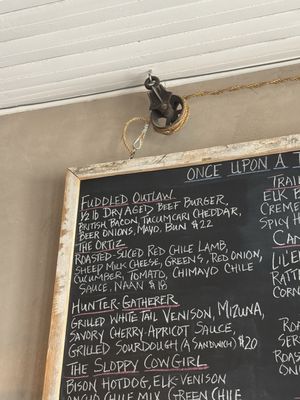 ONCE UPON A T
FUDDLED OUTLAW
1/2 lb DRY AGED BEEF BURGER,
BRITISH BACON, TUCUMCARI CHEDDAR,
BEER ONIONS, MAYO, BUN $22
THE ORTIZ
ROASTED-SLICED RED CHILE LAMB,
SHEEP MILK CHEESE, GREENS, RED ONION,
CUCUMBER, TOMATO, CHIMAYO CHILE
SAUCE, NAAN $18
HUNTER-GATHERER
GRILLED WHITE TAIL VENISON, MIZUNA,
SAVORY CHERRY-APRICOT SAUCE,
GRILLED SOURDOUGH (A SANDWICH) $20
THE SLOPPY COWGIRL
BISON HOTDOG, ELK-VENISON
CHILE MIX, GREEN CHILE
TRAIL
ELK B
CREME
SPICY H
CAN
LIL'E
RATT
CHIL
ROA
SER
ROAS
ONI